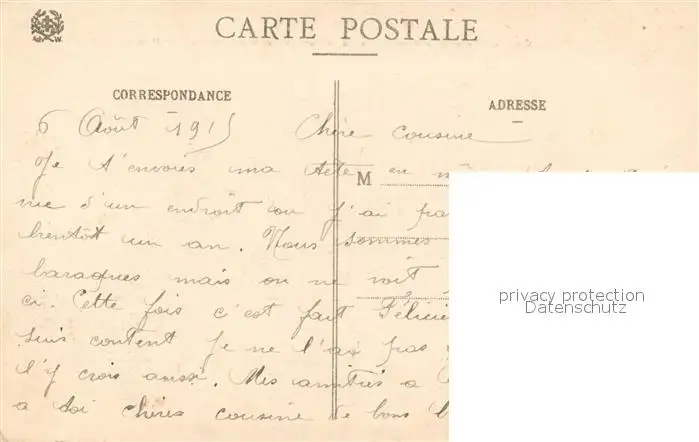 CARTE POSTALE
CORRESPONDANCE
ADRESSE
6 Août 1915 Chère cousine
Je t'envoies ma tête en
M
vue d'un endroit ou j'ai
bientôt un an. Nous sommes
baraques mais on ne voit
ci. Cette fois c'est fait Félici
suis content je ne l'ai pas
l'y crois aussi. Mes amitiés a
a toi chères cousine de bons
privacy protection
Datenschutz